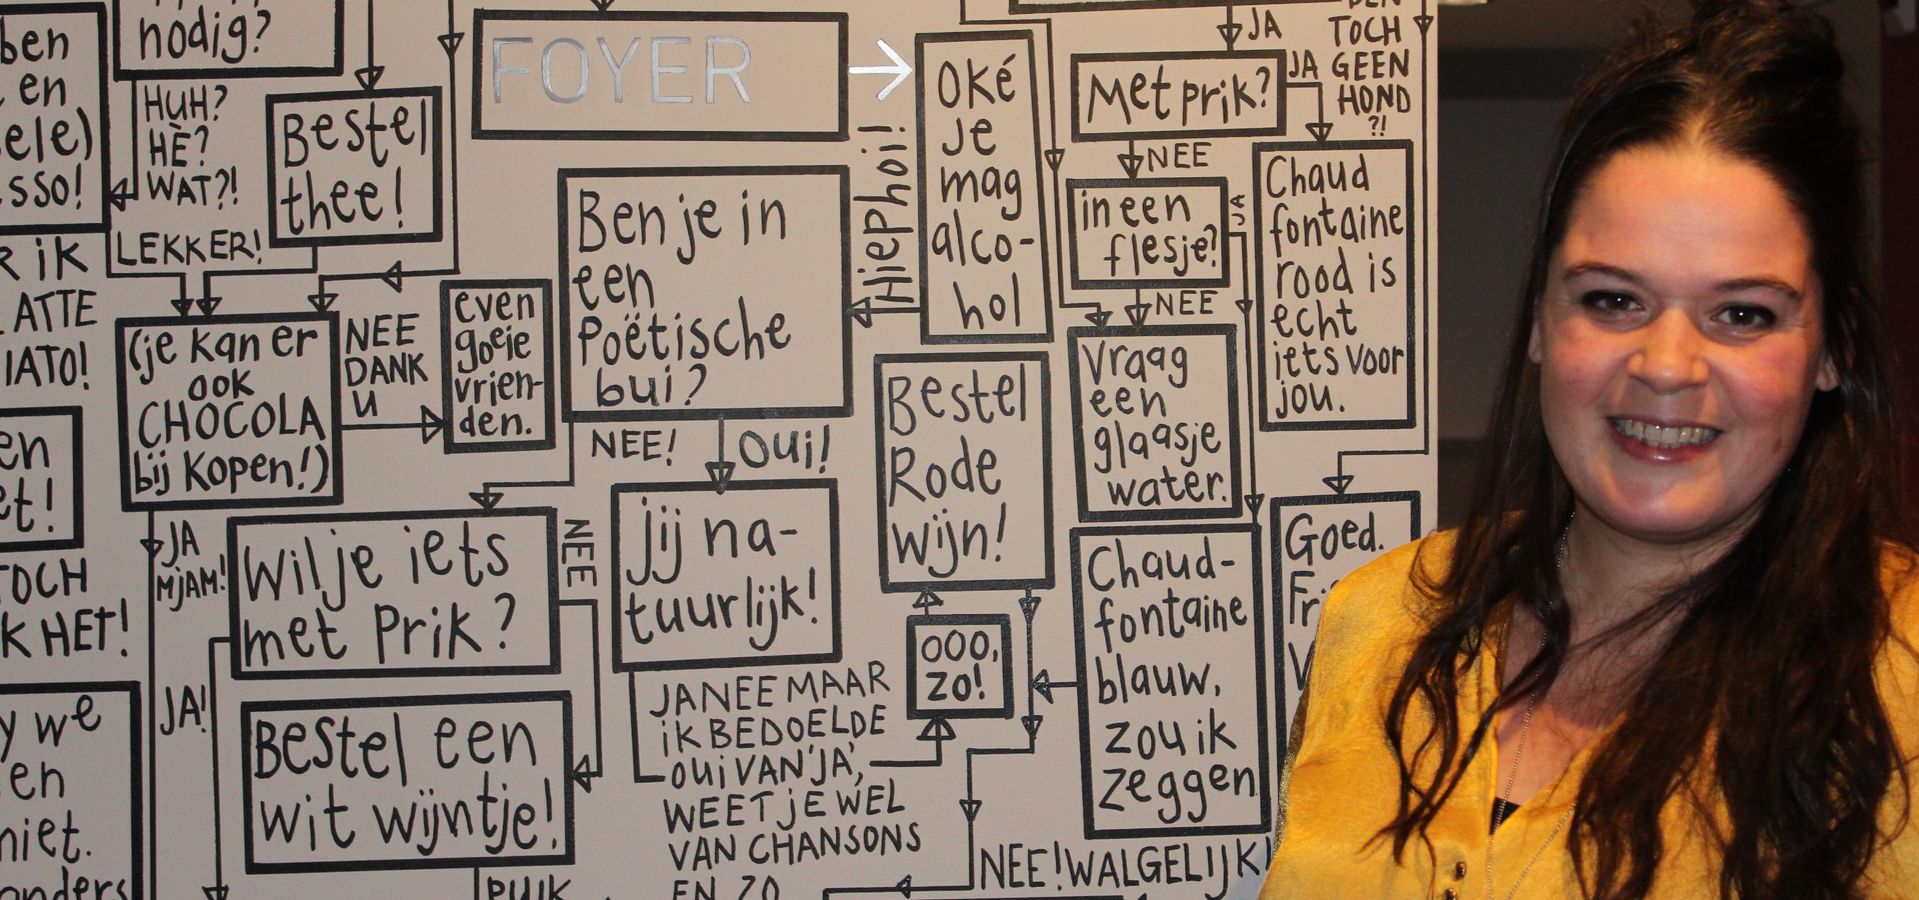 nodig?
ben
en
ele)
sso!
HUH?
HÈ?
WAT?!
Bestel
thee!
LEKKER!
R iK
ATTE
IATO!
(je kan er
ook
CHOCOLA
bij kopen!)
NEE
DANK
U
even
goeie
vrien-
den.
FOYER
Ben je in
een
Poëtische
bui?
Hiephoi!
Oké
je
mag
alco-
hol
JA
Met prik?
JA
TOCH
GEEN
HOND
?!
NEE
in een
flesje?
JA
NEE
Chaud
fontaine
rood is
echt
iets voor
jou.
Vraag
een
glaasje
water.
Bestel
Rode
wijn!
NEE!
Oui!
en
et!
TOCH
K HET!
JA
MJAM!
Wil je iets
met Prik?
NEE
jij na-
tuurlijk!
JA!
Bestel een
wit wijntje!
JA NEE MAAR
iK BEDOELDE
OUi VAN 'JA',
WEET JE WEL
VAN CHANSONS
EN ZO
OOO,
ZO!
Chaud-
fontaine
blauw,
zou ik
zeggen
Goed.
NEE! WALGELIJK!
y we
en
niet.
onders
PUIK